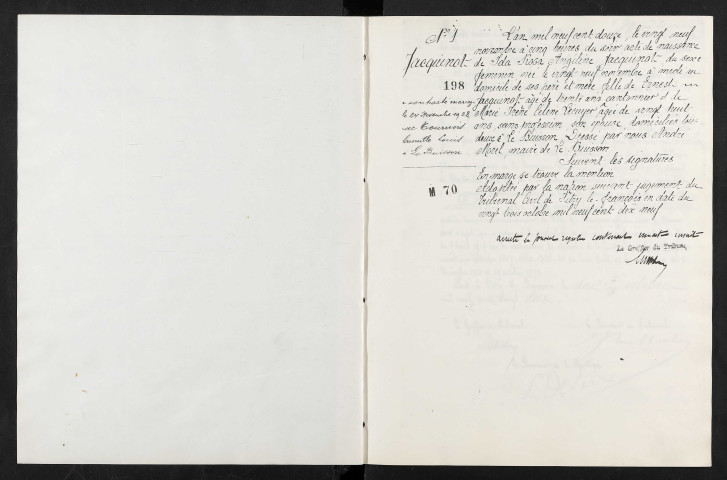 No 1
Jacquinot
198
a contracté mariage
le 24 novembre 1928
avec Tournois
Camille Louis
à Le Buisson
M 70
L'an mil neuf cent douze le vingt neuf
novembre à cinq heures du soir acte de naissance
de Ida Rosa Angeline Jacquinot du sexe
féminin née le vingt neuf novembre à midi au
domicile de ses père et mère fille de Ernest
Jacquinot âgé de trente ans cantonnier et de
Marie Irène Célene âgée de vingt huit
ans sans profession son épouse domiciliés tous
deux à Le Buisson Dressé par nous André
Moril maire de Le Buisson
Suivent les signatures
En marge se trouve la mention
Adoptée par la nation suivant jugement du
Tribunal Civil de Vitry le François en date du
vingt trois octobre mil neuf cent dix neuf
arrêté le présent registre contenant
Le Greffier du Tribunal